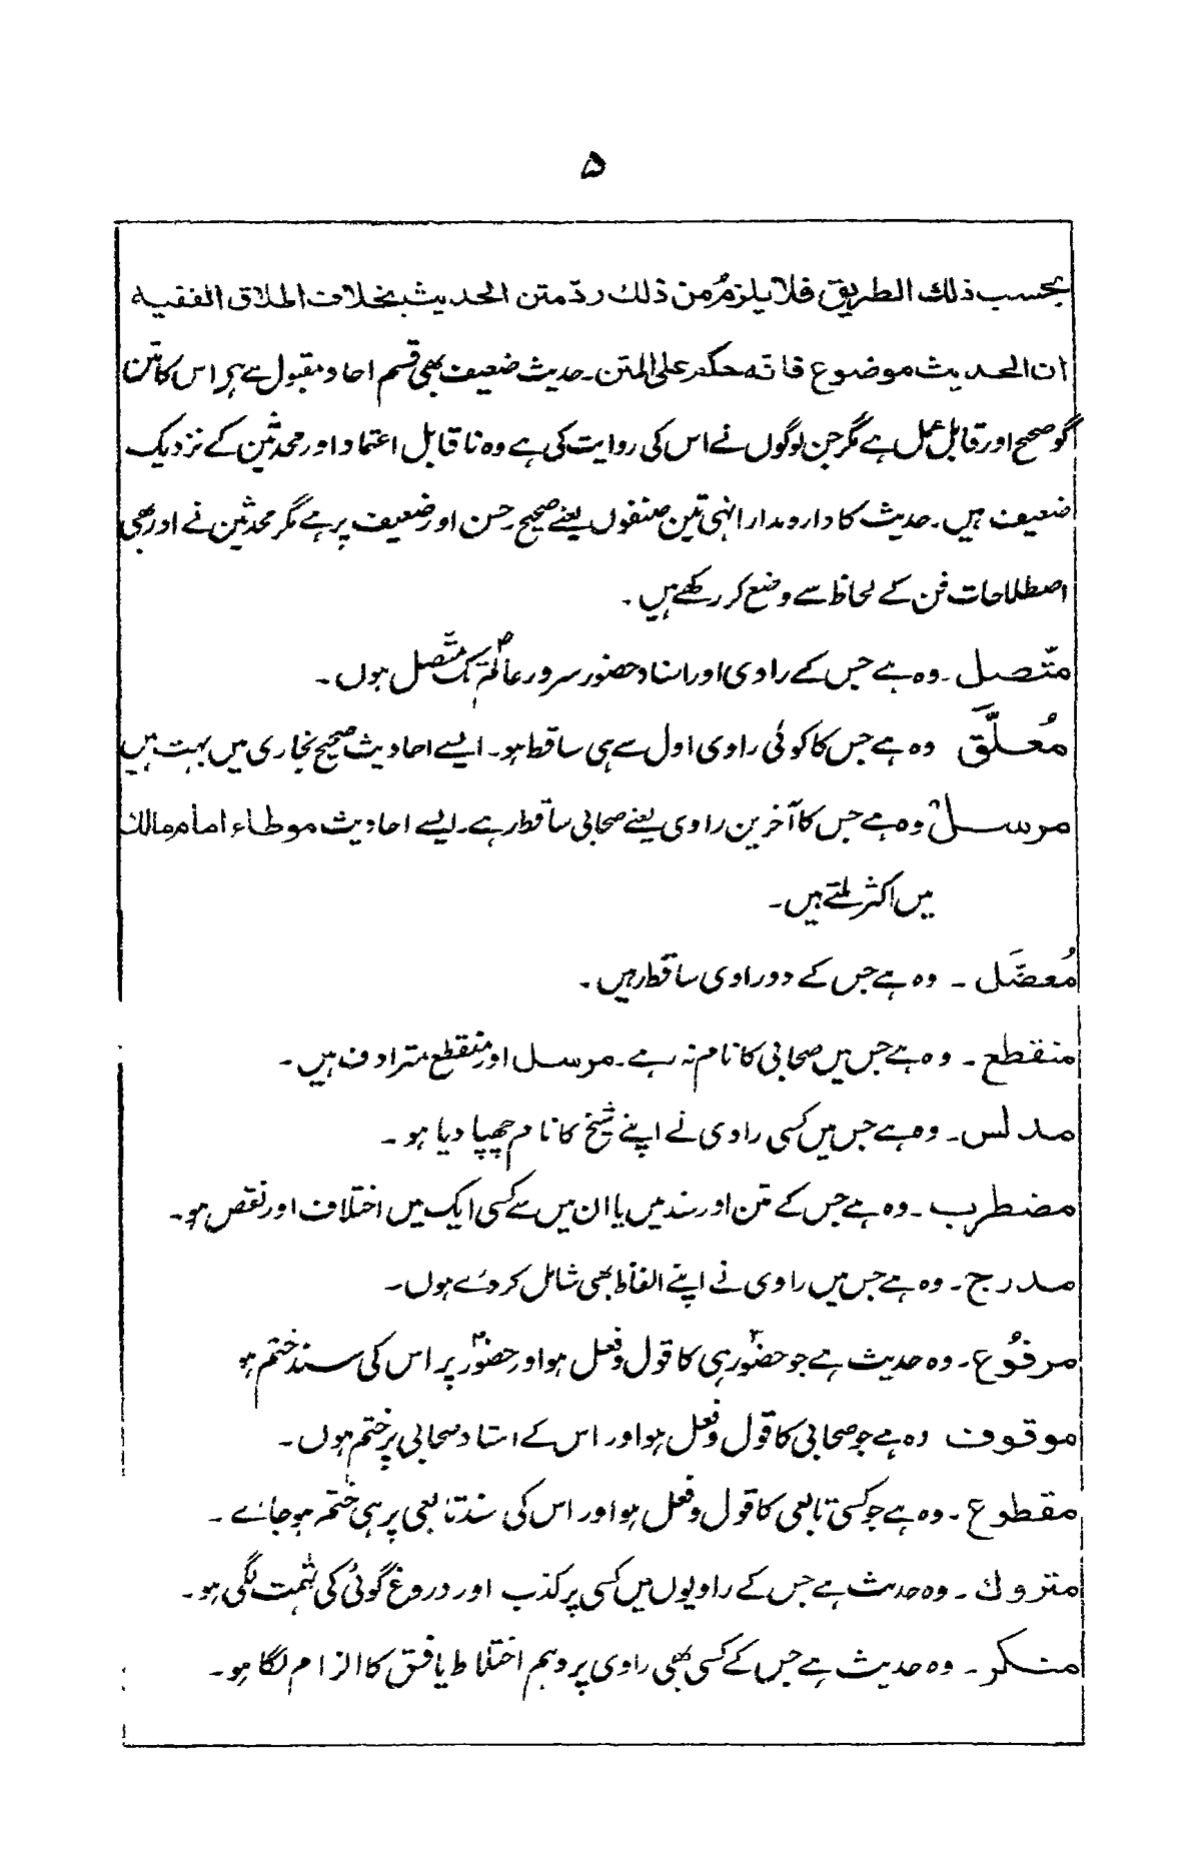 ۵
بحسب ذلك الطريق فلا يلزم من ذلك ردّ متن الحديث بخلاف اطلاق الفقيه
ان الحديث موضوع فانه حكم على المتن۔ حدیث ضعیف بھی قسم احاد مقبول سے ہے اس کا متن
گو صحیح اور قابل عمل ہے مگر جن لوگوں نے اس کی روایت کی ہے وہ ناقابل اعتماد اور محدثین کے نزدیک
ضعیف ہیں۔ حدیث کا دارومدار انہی تین صنفوں یعنے صحیح۔ حسن اور ضعیف پر ہے مگر محدثین نے اور بھی
اصطلاحات فن کے لحاظ سے وضع کر رکھے ہیں ۔
متّصل ۔ وہ ہے جس کے راوی اور اسناد حضور سرور عالمؐ تک متّصل ہوں ۔
مُعلَّق وہ ہے جس کا کوئی راوی اول سے ہی ساقط ہو۔ ایسے احادیث صحیح بخاری میں بہت ہیں
مرسل وہ ہے جس کا آخرین راوی یعنے صحابی ساقط رہے۔ ایسے احادیث موطاء امام مالک
میں اکثر ملتے ہیں۔
مُعضَل ۔ وہ ہے جس کے دو راوی ساقط رہیں ۔
منقطع ۔ وہ ہے جس میں صحابی کا نام نہ رہے ۔ مرسل اور منقطع مترادف ہیں ۔
مدلس۔ وہ ہے جس میں کسی راوی نے اپنے شیخ کا نام چھپا دیا ہو ۔
مضطرب ۔ وہ ہے جس کے متن اور سند میں یا ان میں سے کسی ایک میں اختلاف اور نقص ہو۔
مدرج ۔ وہ ہے جس میں راوی نے اپنے الفاظ بھی شامل کر دئے ہوں۔
مرفوُع ۔ وہ حدیث ہے جو حضورؐ ہی کا قول و فعل ہو اور حضورؐ پر اس کی سند ختم ہو
موقوف وہ ہے جو صحابی کا قول و فعل ہو اور اس کے اسناد صحابی پر ختم ہوں ۔
مقطوع ۔ وہ ہے جو کسی تابعی کا قول و فعل ہو اور اس کی سند تابعی پر ہی ختم ہو جائے ۔
متروك ۔ وہ حدیث ہے جس کے راویوں میں کسی پر کذب اور دروغ گوئی کی تہمت لگی ہو ۔
منکر ۔ وہ حدیث ہے جس کے کسی بھی راوی پر وہم اختلاط یا فسق کا الزام لگا ہو ۔